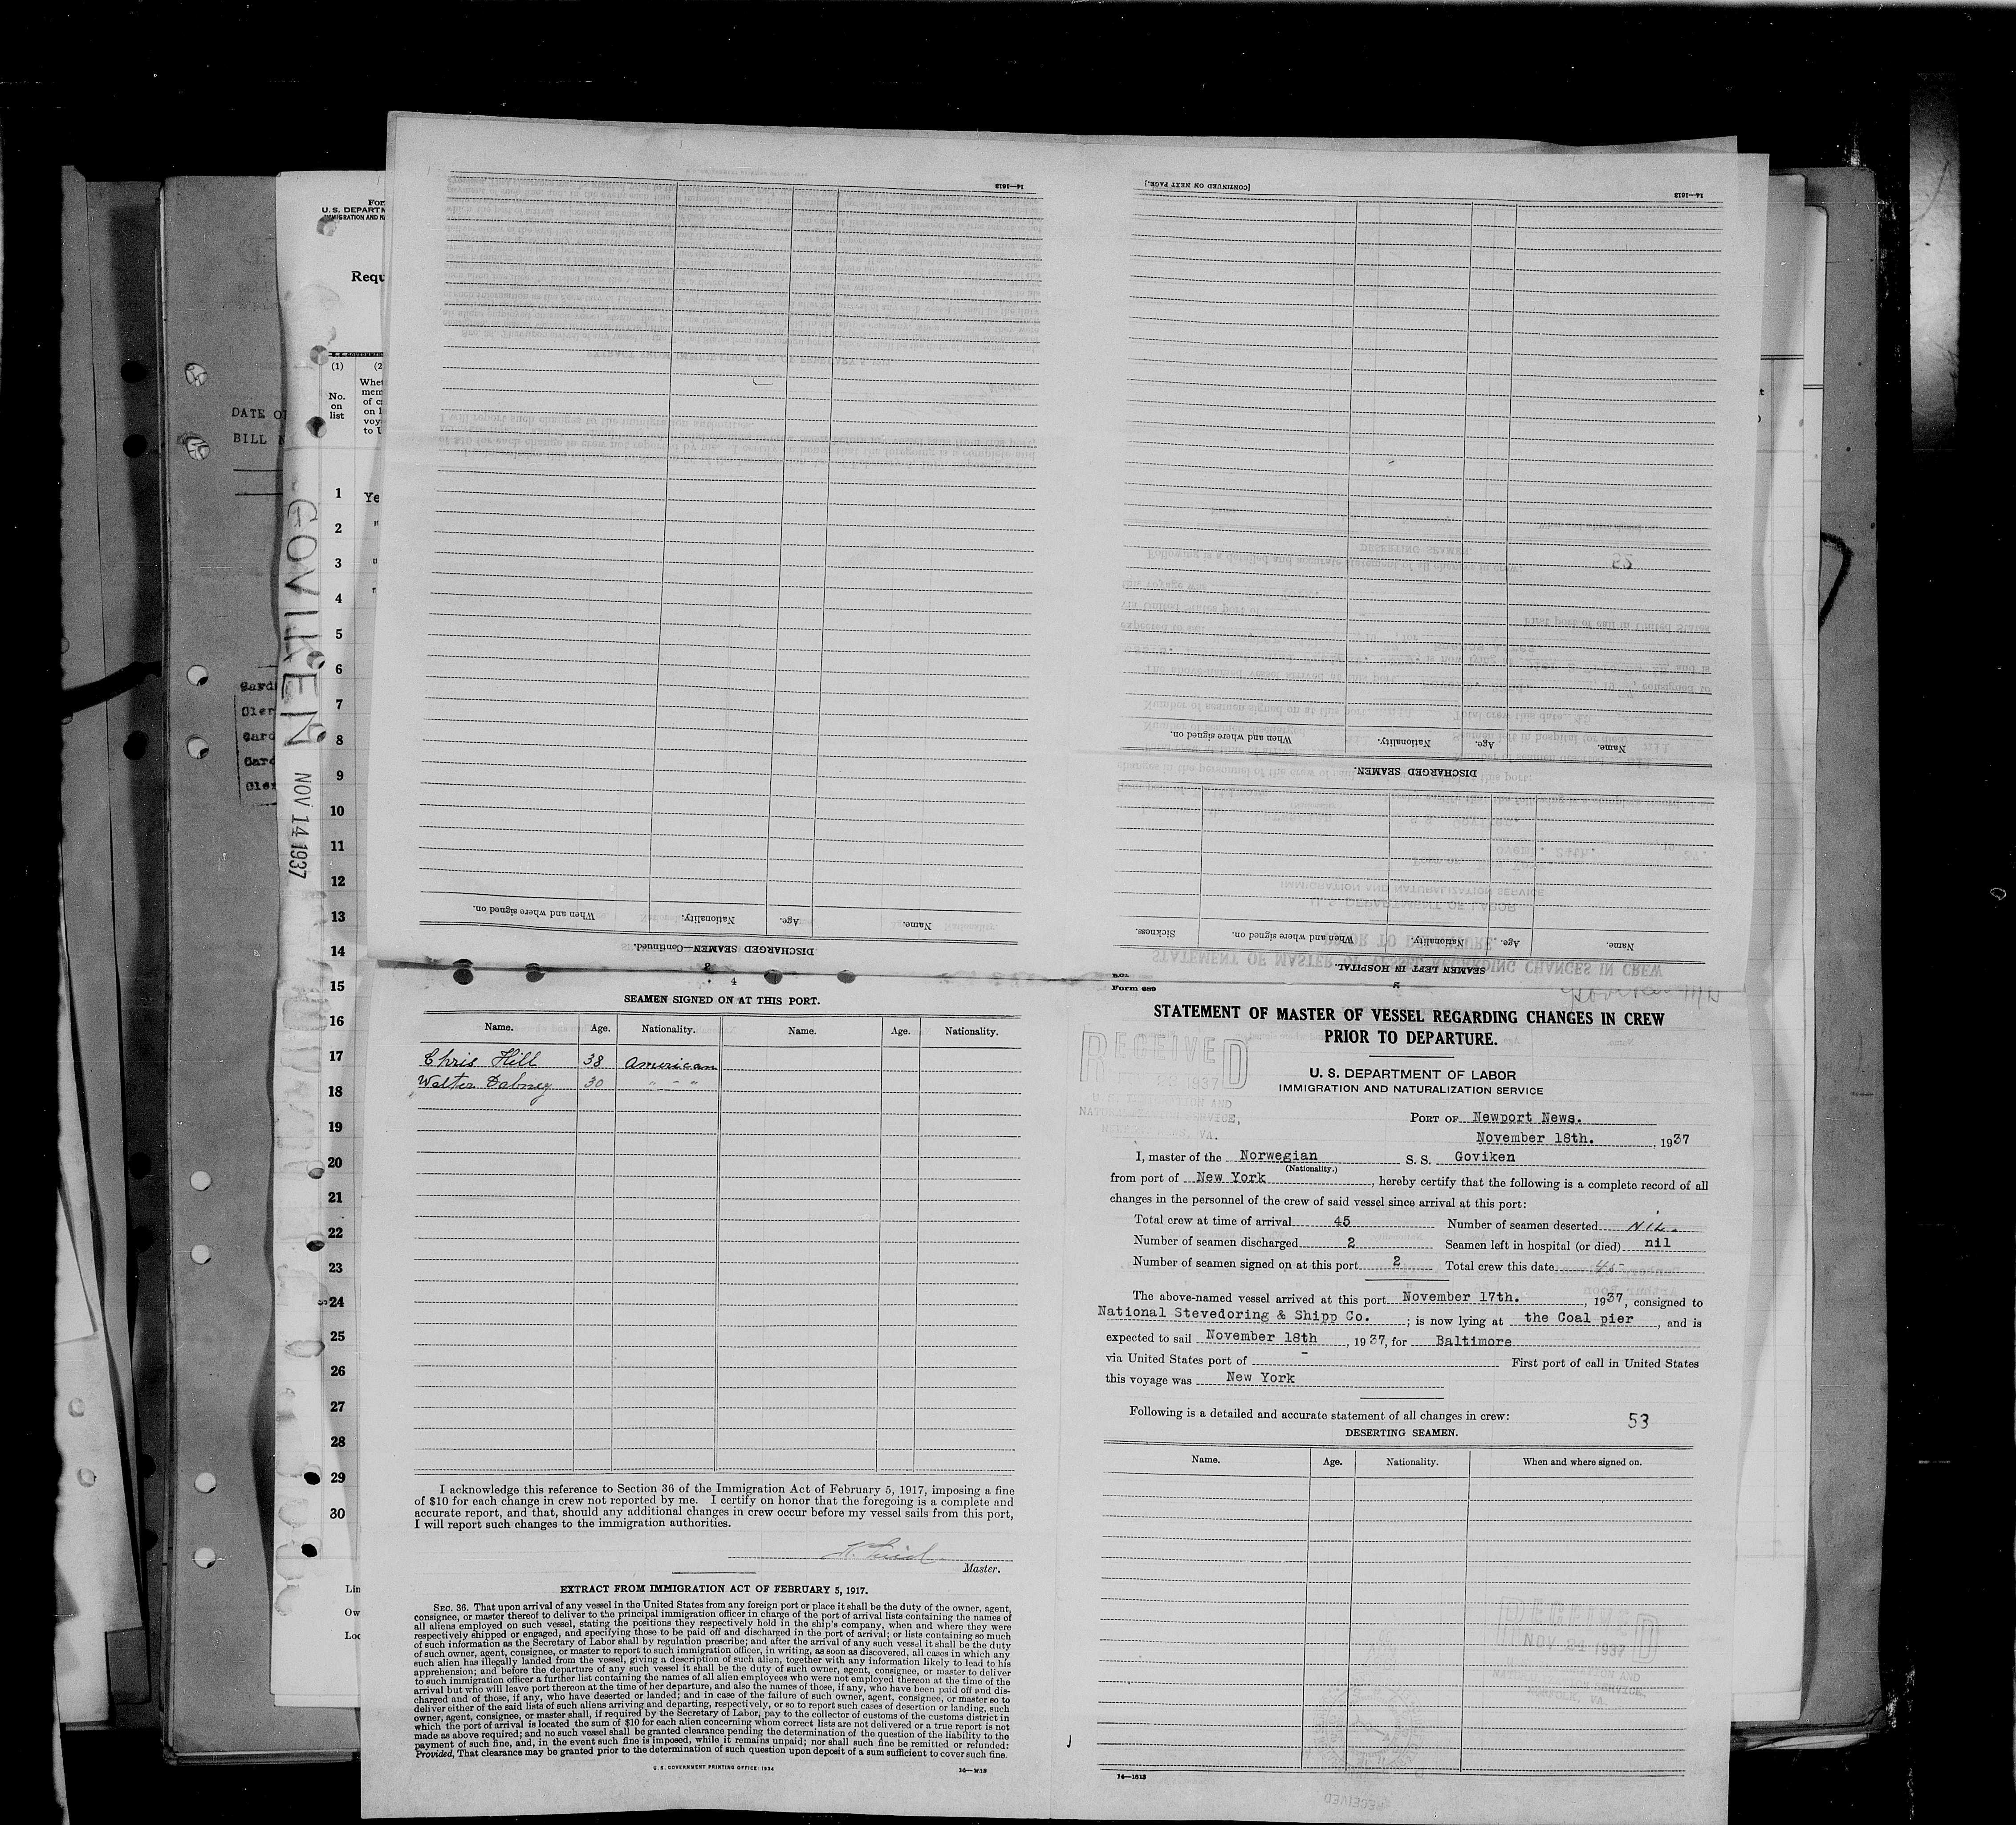 For
U. S. DEPARTM
IMMIGRATION AND NA
Requ
(1)
(2
No.
on
list
Whet
mem
of c
on l
voy
to U
DATE O
BILL N
GOVIKEN
NOV 14 1937
Ye
1
2
3
4
5
6
7
8
9
10
11
12
13
14
15
16
17
18
19
20
21
22
23
24
25
26
27
28
29
30
Gard
Gler
Gard
Gard
Gler
Lin
Ow
Loc
14—1613
DISCHARGED SEAMEN—Continued.
Name. Age. Nationality. When and where signed on.
[CONTINUED ON NEXT PAGE.]
14—1613
SEAMEN LEFT IN HOSPITAL.
Name. Age. Nationality. When and where signed on. Sickness.
DISCHARGED SEAMEN.
Name. Age. Nationality. When and where signed on.
3
4
SEAMEN SIGNED ON AT THIS PORT.
Name. Age. Nationality. Name. Age. Nationality.
Chris Hill 38 American
Walter Dabney 30 " - "
I acknowledge this reference to Section 36 of the Immigration Act of February 5, 1917, imposing a fine
of $10 for each change in crew not reported by me. I certify on honor that the foregoing is a complete and
accurate report, and that, should any additional changes in crew occur before my vessel sails from this port,
I will report such changes to the immigration authorities.
Master.
EXTRACT FROM IMMIGRATION ACT OF FEBRUARY 5, 1917.
SEC. 36. That upon arrival of any vessel in the United States from any foreign port or place it shall be the duty of the owner, agent,
consignee, or master thereof to deliver to the principal immigration officer in charge of the port of arrival lists containing the names of
all aliens employed on such vessel, stating the positions they respectively hold in the ship's company, when and where they were
respectively shipped or engaged, and specifying those to be paid off and discharged in the port of arrival; or lists containing so much
of such information as the Secretary of Labor shall by regulation prescribe; and after the arrival of any such vessel it shall be the duty
of such owner, agent, consignee, or master to report to such immigration officer, in writing, as soon as discovered, all cases in which any
such alien has illegally landed from the vessel, giving a description of such alien, together with any information likely to lead to his
apprehension; and before the departure of any such vessel it shall be the duty of such owner, agent, consignee, or master to deliver
to such immigration officer a further list containing the names of all alien employees who were not employed thereon at the time of the
arrival but who will leave port thereon at the time of her departure, and also the names of those, if any, who have been paid off and dis-
charged and of those, if any, who have deserted or landed; and in case of the failure of such owner, agent, consignee, or master so to
deliver either of the said lists of such aliens arriving and departing, respectively, or so to report such cases of desertion or landing, such
owner, agent, consignee, or master shall, if required by the Secretary of Labor, pay to the collector of customs of the customs district in
which the port of arrival is located the sum of $10 for each alien concerning whom correct lists are not delivered or a true report is not
made as above required; and no such vessel shall be granted clearance pending the determination of the question of the liability to the
payment of such fine, and, in the event such fine is imposed, while it remains unpaid; nor shall such fine be remitted or refunded:
Provided, That clearance may be granted prior to the determination of such question upon deposit of a sum sufficient to cover such fine.
U. S. GOVERNMENT PRINTING OFFICE: 1934
14—1613
Form 689
STATEMENT OF MASTER OF VESSEL REGARDING CHANGES IN CREW
PRIOR TO DEPARTURE.
RECEIVED
1937
U. S. DEPARTMENT OF LABOR
IMMIGRATION AND NATURALIZATION SERVICE
PORT OF Newport News.
November 18th. , 1937
I, master of the Norwegian S. S. Goviken
(Nationality.)
from port of New York , hereby certify that the following is a complete record of all
changes in the personnel of the crew of said vessel since arrival at this port:
Total crew at time of arrival 45 Number of seamen deserted NIL.
Number of seamen discharged 2 Seamen left in hospital (or died) nil
Number of seamen signed on at this port 2 Total crew this date 45
The above-named vessel arrived at this port November 17th. , 1937, consigned to
National Stevedoring & Shipp Co. ; is now lying at the Coal pier , and is
expected to sail November 18th , 1937, for Baltimore
via United States port of - First port of call in United States
this voyage was New York
Following is a detailed and accurate statement of all changes in crew:
53
DESERTING SEAMEN.
Name. Age. Nationality. When and where signed on.
RECEIVED
NOV 24 1937
14—1613
RECEIVED